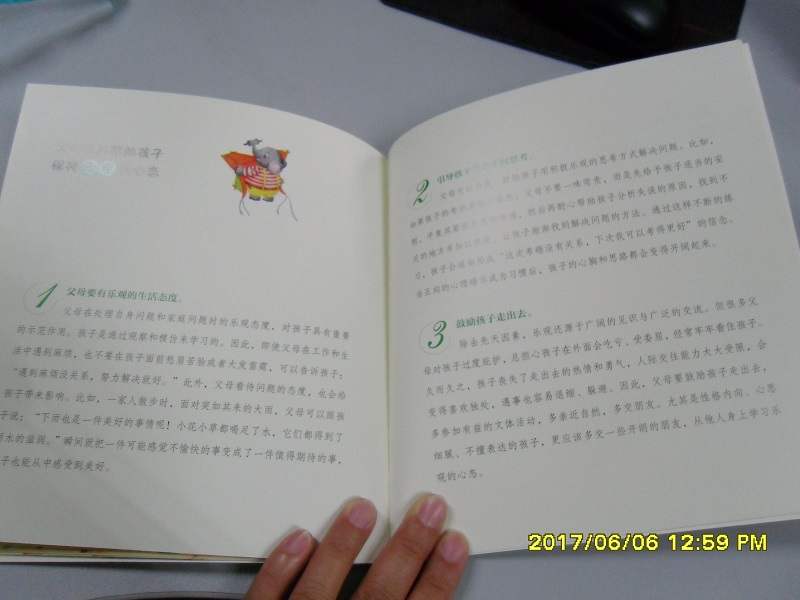 孩子
保持乐观的心态
1 父母要有乐观的生活态度。
父母在处理自身问题和家庭问题时的乐观态度，对孩子具有重要
的示范作用。孩子是通过观察和模仿来学习的。因此，即使父母在工作和生
活中遇到麻烦，也不要在孩子面前愁眉苦脸或者大发雷霆，可以告诉孩子：
“遇到麻烦没关系，努力解决就好。”此外，父母看待问题的态度，也会给
孩子带来影响。比如，一家人散步时，面对突如其来的大雨，父母可以跟孩
子说：“下雨也是一件美好的事情呢！小花小草都喝足了水，它们都得到了
雨水的滋润。”瞬间就把一件可能感觉不愉快的事变成了一件值得期待的事，
子也能从中感受到美好。
2 引导孩子的思考。
父母可以引导孩子用积极乐观的思考方式解决问题。比如，
如果孩子的考试，父母不要一味责备，而是先给予孩子适当的安
慰，平复其，然后再耐心帮助孩子分析失误的原因，找到不
足的地方并加以改正，让孩子渐渐找到解决问题的方法。通过这样不断的练
习，孩子会逐渐形成“这次考砸没有关系，下次我可以考得更好”的信念。
当正向的心理暗示成为习惯后，孩子的心胸和思路都会变得开阔起来。
3 鼓励孩子走出去。
除去先天因素，乐观还源于广阔的见识与广泛的交流。但很多父
母对孩子过度庇护，总担心孩子在外面会吃亏、受委屈，经常牢牢看住孩子。
久而久之，孩子丧失了走出去的热情和勇气，人际交往能力大大受限，会
变得喜欢独处，遇事也容易退缩、躲避。因此，父母要鼓励孩子走出去，
多参加有益的文体活动，多亲近自然，多交朋友。尤其是性格内向、心思
细腻、不擅表达的孩子，更应该多交一些开朗的朋友，从他人身上学习乐
观的心态。
2017/06/06 12:59 PM